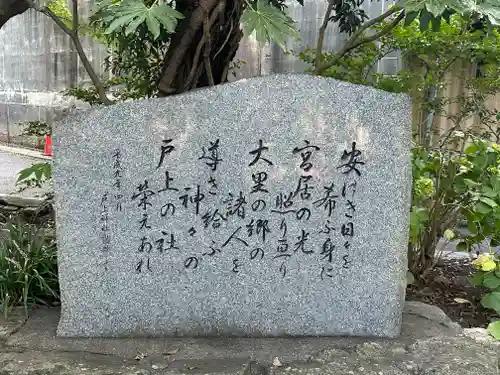 安けき日々を
希ふ身に
宮居の光
照り亘り
大里の郷の
諸人を
導き給ふ
神々の
戸上の社
栄えあれ
平成九年四月